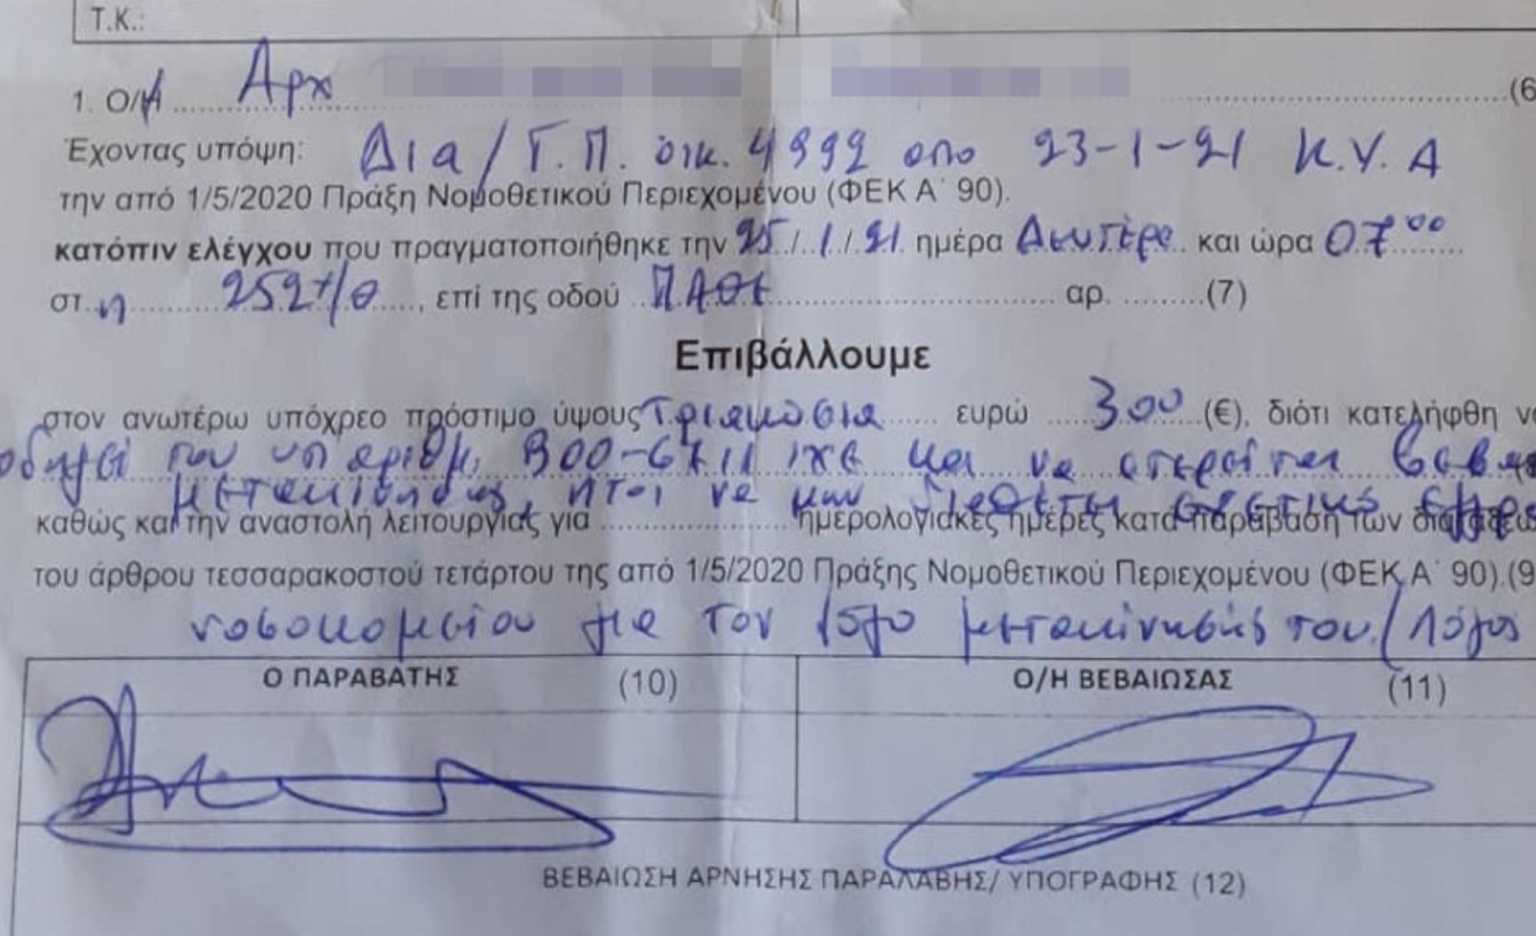 Τ.Κ.:
1. Ο/Η Αρχ (6
Έχοντας υπόψη: Δ1α/Γ.Π. οικ. 4992 απο 23-1-21 Κ.Υ.Α
την από 1/5/2020 Πράξη Νομοθετικού Περιεχομένου (ΦΕΚ Α΄ 90).
κατόπιν ελέγχου που πραγματοποιήθηκε την 25/1/21 ημέρα Δευτέρα και ώρα 07⁰⁰
στ η 252 χ/θ, επί της οδού ΠΑΘΕ αρ. (7)
Επιβάλλουμε
στον ανωτέρω υπόχρεο πρόστιμο ύψους Τριακόσια ευρώ 300 (€), διότι κατελήφθη ν
οδηγεί του υπ αριθμ. ΙΧΕ και να στερείται
μετακίνησης, ήτοι να μην διαθέτει σχετικό
καθώς και την αναστολή λειτουργίας για ημερολογιακές ημέρες κατά παράβαση των διατάξεω
του άρθρου τεσσαρακοστού τετάρτου της από 1/5/2020 Πράξης Νομοθετικού Περιεχομένου (ΦΕΚ Α΄ 90).(9
νοσοκομείου για τον λόγο μετακίνησής του. (Λόγος
Ο ΠΑΡΑΒΑΤΗΣ (10) Ο/Η ΒΕΒΑΙΩΣΑΣ (11)
ΒΕΒΑΙΩΣΗ ΑΡΝΗΣΗΣ ΠΑΡΑΛΑΒΗΣ/ ΥΠΟΓΡΑΦΗΣ (12)